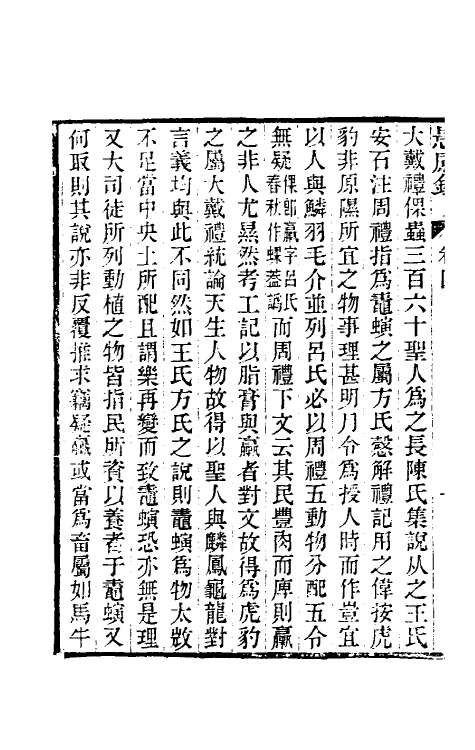 大戴禮倮蟲三百六十聖人爲之長陳氏集說从之王氏
安石注周禮指爲鼃螾之屬方氏慤解禮記用之偉按虎
豹非原隰所宜之物事理甚明月令爲授人時而作豈宜
以人與鱗羽毛介並列呂氏必以周禮五動物分配五令
無疑倮即蠃字呂氏春秋作螺蓋譌而周禮下文云其民豐肉而庳則蠃
之非人尤㬎然考工記以脂膏與蠃者對文故得爲虎豹
之屬大戴禮統論天生人物故得以聖人與麟鳳龜龍對
言義均與此不同然如王氏方氏之說則鼃螾爲物太𢿱
不足當中央土所配且謂樂再變而致鼃螾恐亦無是理
又大司徒所列動植之物皆指民所資以養者于鼃螾又
何取則其說亦非反覆推求竊疑蠃或當爲畜屬如馬牛